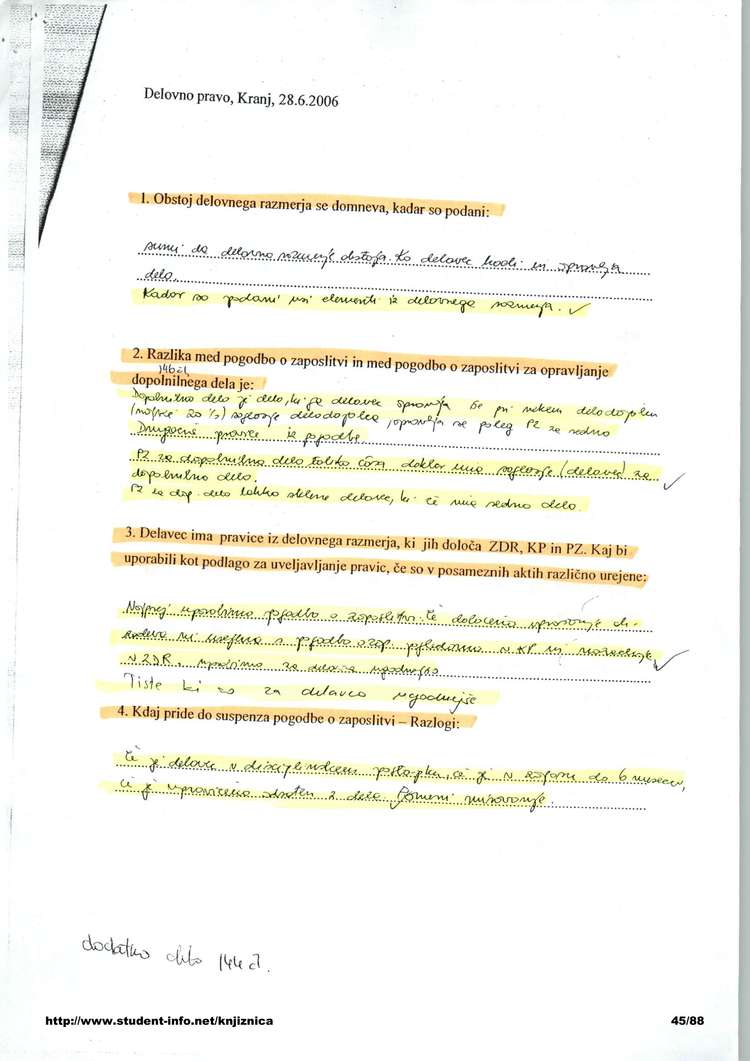 Delovno pravo, Kranj, 28.6.2006
1. Obstoj delovnega razmerja se domneva, kadar so podani:
da delovno razmerje obstoja. Ko delavec hodi in opravlja
delo.
Kadar so podani vsi elementi iz delovnega razmerja. ✓
2. Razlika med pogodbo o zaposlitvi in med pogodbo o zaposlitvi za opravljanje
146 čl
dopolnilnega dela je:
Dopolnilno delo je delo, ki ga delavec opravlja še pri nekem delodajalcu
(največ 20 %) soglasje delodajalca, opravlja se poleg PZ za redno
Drugačne pravice iz pogodbe.
PZ za dopolnilno delo toliko časa dokler ima soglasje (delavec) za
dopolnilno delo. ✓
PZ za dop. delo lahko sklene delavec, ki že ima redno delo.
3. Delavec ima pravice iz delovnega razmerja, ki jih določa ZDR, KP in PZ. Kaj bi
uporabili kot podlago za uveljavljanje pravic, če so v posameznih aktih različno urejene:
Najprej uporabimo pogodbo o zaposlitvi. Če določena
ni urejena s pogodbo o zap. pogledamo v KP in
v ZDR, uporabimo za delavca ugodnejšo ✓
Tiste ki so za delavca ugodnejše
4. Kdaj pride do suspenza pogodbe o zaposlitvi – Razlogi:
Če je delavec v disciplinskem postopku, če je v zaporu do 6 mesecev,
če je upravičeno odsoten z dela. Pomeni mirovanje.
dodatno delo 144 čl.
http://www.student-info.net/knjiznica
45/88